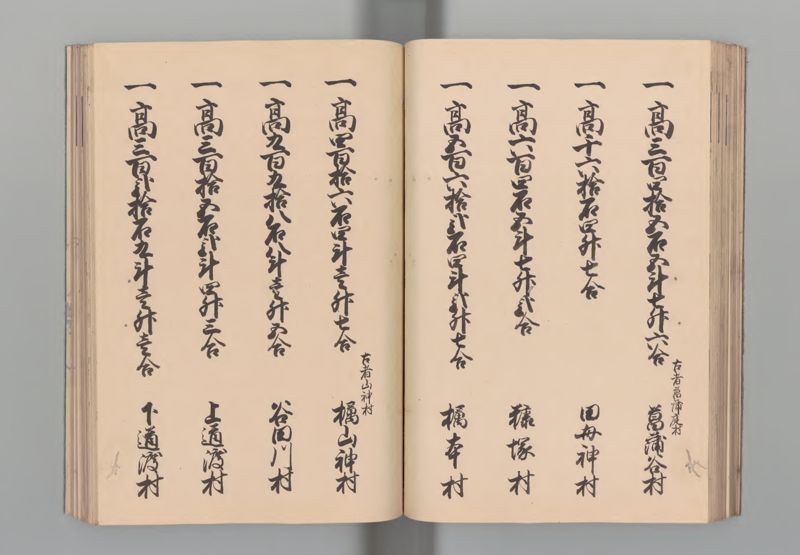 一 高三百四拾五石五斗七升六合
古者菖蒲庭村
菖蒲谷村
一 高十六拾石四升七合
田母神村
一 高六百四石五斗七升弐合
糠塚村
一 高五百六拾弐石四斗弐升七合
橋本村
一 高四百拾六石四斗壱升七合
古者山神村
橋山神村
一 高九百九拾八石八斗壱升五合
谷田川村
一 高三百拾五石弐斗四升三合
上道渡村
一 高三百弐拾石九斗壱升壱合
下道渡村